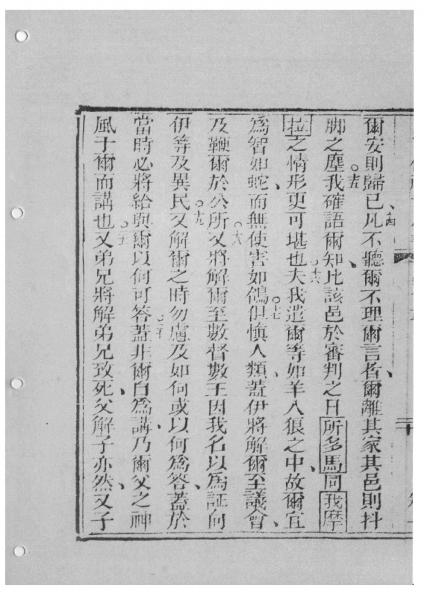 爾安則歸已凡不聽爾不理爾言者爾離其家其邑則抖
脚之塵我確語爾知比該邑於審判之日所多馬同我摩
拉之情形更可堪也夫我遣爾等如羊入狼之中故爾宜
為智如蛇而無使害如鴿俱慎人類蓋伊將解爾至議會
及鞭爾於公所又將解爾至數督數王因我名以為証向
伊等及異民又解爾之時勿慮及如何或以何為答蓋於
當時必將給與爾以何可答蓋非爾自為講乃爾父之神
風于爾而講也又弟兄將解弟兄致死父解子亦然又子